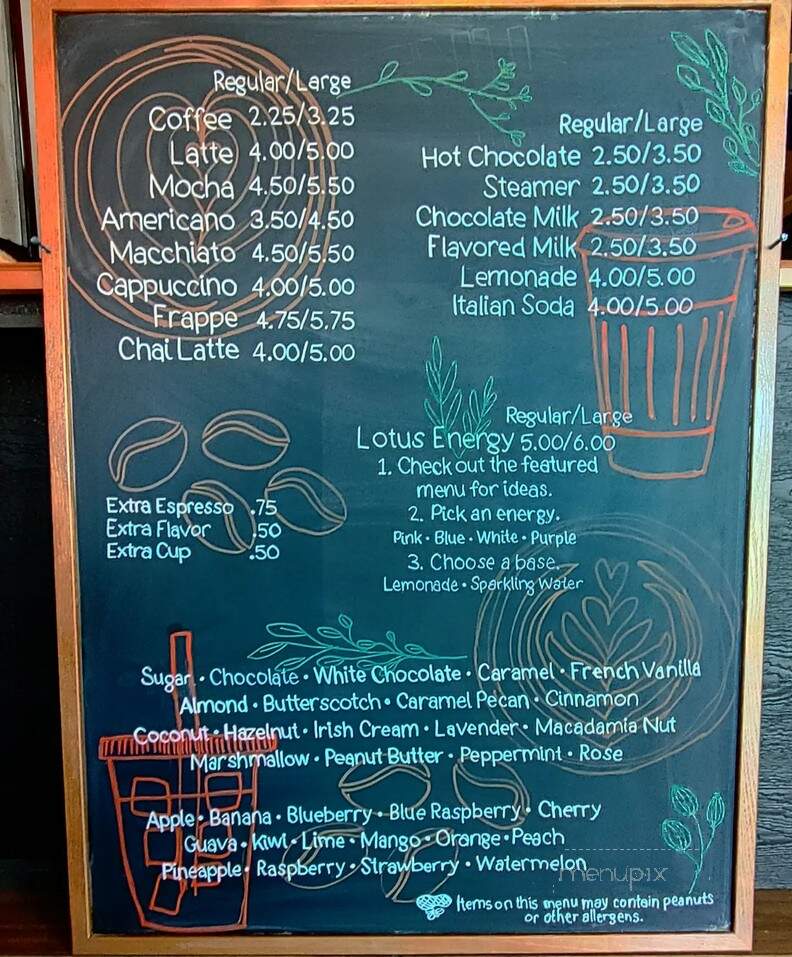 Regular/Large
Coffee 2.25/3.25
Latte 4.00/5.00
Mocha 4.50/5.50
Americano 3.50/4.50
Macchiato 4.50/5.50
Cappuccino 4.00/5.00
Frappe 4.75/5.75
Chai Latte 4.00/5.00
Regular/Large
Hot Chocolate 2.50/3.50
Steamer 2.50/3.50
Chocolate Milk 2.50/3.50
Flavored Milk 2.50/3.50
Lemonade 4.00/5.00
Italian Soda 4.00/5.00
Extra Espresso .75
Extra Flavor .50
Extra Cup .50
Regular/Large
Lotus Energy 5.00/6.00
1. Check out the featured
menu for ideas.
2. Pick an energy.
Pink • Blue • White • Purple
3. Choose a base.
Lemonade • Sparkling Water
Sugar • Chocolate • White Chocolate • Caramel • French Vanilla
Almond • Butterscotch • Caramel Pecan • Cinnamon
Coconut • Hazelnut • Irish Cream • Lavender • Macadamia Nut
Marshmallow • Peanut Butter • Peppermint • Rose
Apple • Banana • Blueberry • Blue Raspberry • Cherry
Guava • Kiwi • Lime • Mango • Orange • Peach
Pineapple • Raspberry • Strawberry • Watermelon
menupix
Items on this menu may contain peanuts
or other allergens.